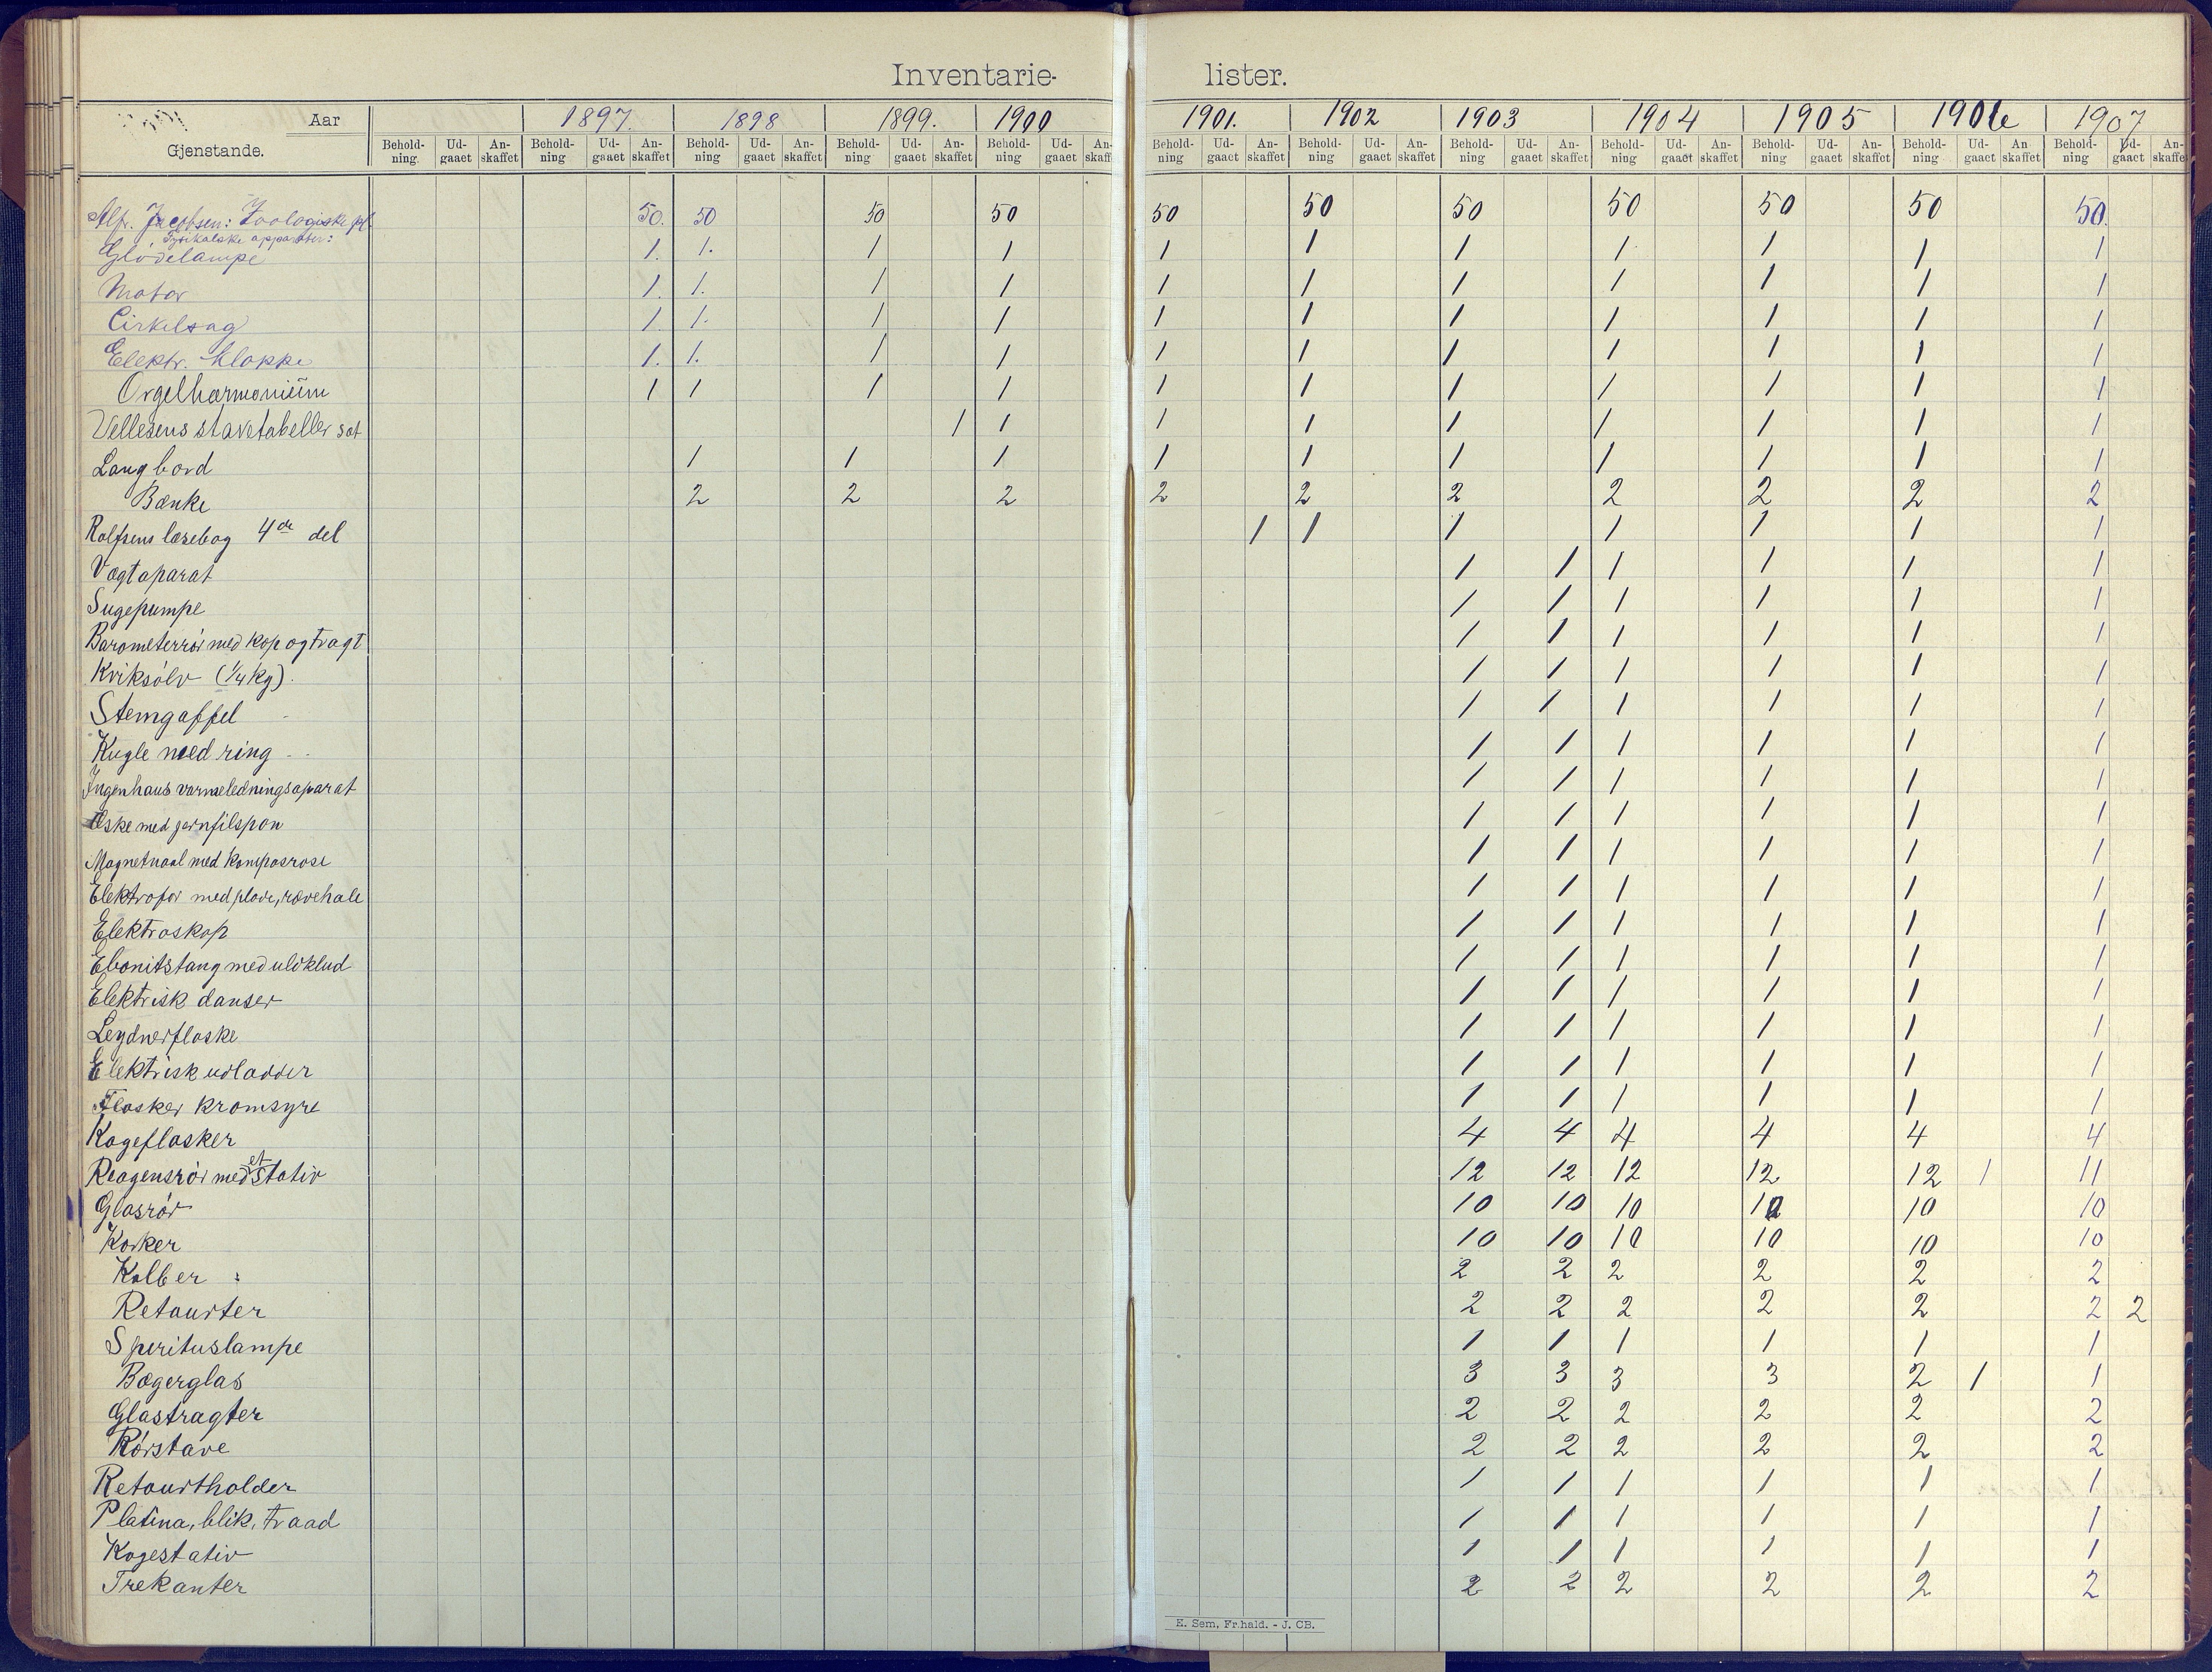 Inventarie- lister.
Aar 1897. 1898 1899. 1900 1901. 1902 1903 1904 1905 1906 1907
Gjenstande. Behold-ning. Ud-gaaet An-skaffet Behold-ning Ud-gaaet An-skaffet Behold-ning Ud-gaaet An-skaffet Behold-ning Ud-gaaet An-skaffet Behold-ning Ud-gaaet An-skaffet Behold-ning Ud-gaaet An-skaffet Behold-ning Ud-gaaet An-skaffet Behold-ning Ud-gaaet An-skaffet Behold-ning Ud-gaaet An-skaffet Behold-ning Ud-gaaet An-skaffet Behold-ning Ud-gaaet An-skaffet Behold-ning Ud-gaaet An-skaffet
Alfr. Jacobsen: Zoologiske pl. 50. 50 50 50 50 50 50 50 50 50 50.
Fysikalske apparater:
Glödelampe 1. 1. 1 1 1 1 1 1 1 1 1
Motor 1. 1. 1 1 1 1 1 1 1 1 1
Cirkelsag 1. 1. 1 1 1 1 1 1 1 1 1
Elektr. klokke 1. 1. 1 1 1 1 1 1 1 1 1
Orgelharmonium 1 1 1 1 1 1 1 1 1 1 1
Vellesens stavetabeller sæt 1 1 1 1 1 1 1 1 1
Langbord 1 1 1 1 1 1 1 1 1 1
Bænke 2 2 2 2 2 2 2 2 2 2
Rolfsens læsebog 4de del 1 1 1 1 1 1 1
Vægtaparat 1 1 1 1 1 1
Sugepumpe 1 1 1 1 1 1
Barometerrör med kop og tragt 1 1 1 1 1 1
Kviksölv (1/4 Kg). 1 1 1 1 1 1
Stemgaffel 1 1 1 1 1 1
Kugle med ring 1 1 1 1 1 1
Ingenhaus varmeledningsaparat 1 1 1 1 1 1
Æske med jernfilspon 1 1 1 1 1 1
Magnetnaal med kompasrose 1 1 1 1 1 1
Elektrofor med plade, rævehale 1 1 1 1 1 1
Elektroskop 1 1 1 1 1 1
Ebonitstang med uldklud 1 1 1 1 1 1
Elektrisk danser 1 1 1 1 1 1
Leydnerflaske 1 1 1 1 1 1
Elektrisk udladder 1 1 1 1 1 1
Flasker kromsyre 1 1 1 1 1 1
Kogeflasker 4 4 4 4 4 4
Reagensrör med et stativ 12 12 12 12 12 1 11
Glasrör 10 10 10 10 10 10
Korker 10 10 10 10 10 10
Kolber : 2 2 2 2 2 2
Retourter 2 2 2 2 2 2 2
Sperituslampe 1 1 1 1 1 1
Bægerglas 3 3 3 3 2 1 1
Glastragter 2 2 2 2 2 2
Rörstave 2 2 2 2 2 2
Retourtholder 1 1 1 1 1 1
Platina, blik, traad 1 1 1 1 1 1
Kogestativ 1 1 1 1 1 1
Trekanter 2 2 2 2 2 2
E. Sem, Fr.hald. - J. CB.